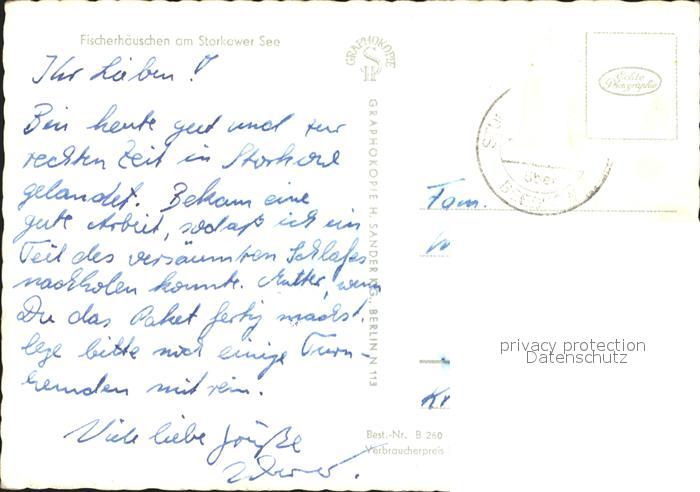 Fischerhäuschen am Storkower See
Ihr Lieben!
Bin heute gut und zur
rechten Zeit in Storkow
gelandet. Bekam eine
gute Arbeit, sodaß ich ein
Teil des versäumten Schlafes
nachholen konnte. Mutter, wenn
Du das Paket fertig machst.
lege bitte noch einige Turn-
hemden mit rein.
Viele liebe Grüße
GRAPHOKOPIE
GRAPHOKOPIE H. SANDER KG., BERLIN N 113
Best.-Nr. B 260
Verbraucherpreis
Echte
Photographie
über
Fam.
privacy protection
Datenschutz